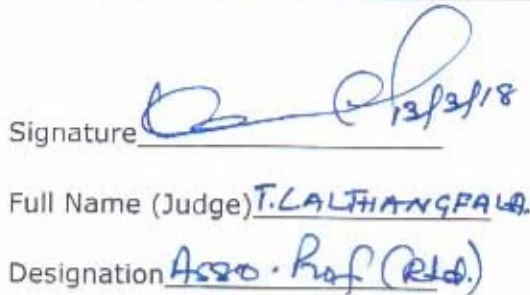 Signature 13/3/18
Full Name (Judge) T. LALTHANGFALA.
Designation Asso. Prof (Rtd.)